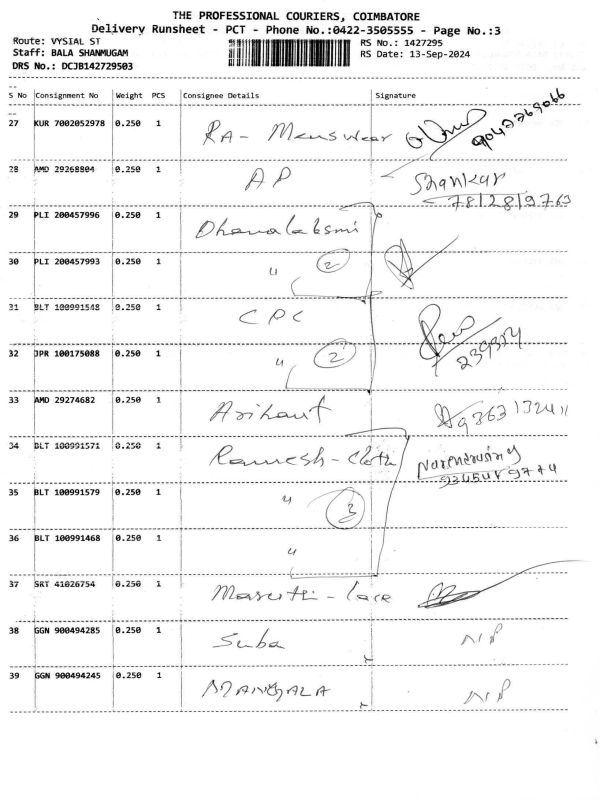 THE PROFESSIONAL COURIERS, COIMBATORE
Delivery Runsheet - PCT - Phone No.:0422-3505555 - Page No.:3
Route: VYSIAL ST RS No.: 1427295
Staff: BALA SHANMUGAM RS Date: 13-Sep-2024
DRS No.: DCJB142729503
S No Consignment No Weight PCS Consignee Details Signature
27 KUR 7002052978 0.250 1 RA - Menswear
28 AMD 29268804 0.250 1 AP Shankar
7812819763
29 PLI 200457996 0.250 1 Dhanalaksmi
30 PLI 200457993 0.250 1 " 2
31 BLT 100991548 0.250 1 CPC
32 JPR 100175088 0.250 1 " 2 239314
33 AMD 29274682 0.250 1 Arihant 9363132411
34 BLT 100991571 0.250 1 Ramesh - Cloth
35 BLT 100991579 0.250 1 " 3
36 BLT 100991468 0.250 1 "
37 SRT 41026754 0.250 1 Maruthi - lace
38 GGN 900494285 0.250 1 Suba N/P
39 GGN 900494245 0.250 1 MANGALA N/P